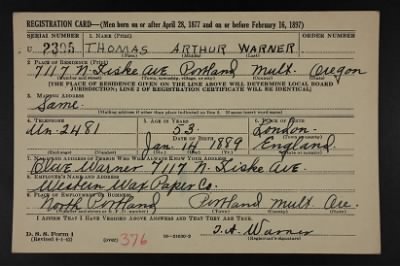 REGISTRATION CARD—(Men born on or after April 28, 1877 and on or before February 16, 1897)
SERIAL NUMBER 1. NAME (Print) ORDER NUMBER
U 2395 THOMAS ARTHUR WARNER
2. PLACE OF RESIDENCE (Print)
7117 N. Fiske Ave Portland Mult. Oregon
(Number and street) (Town, township, village, or city) (County) (State)
[THE PLACE OF RESIDENCE GIVEN ON THE LINE ABOVE WILL DETERMINE LOCAL BOARD
JURISDICTION; LINE 2 OF REGISTRATION CERTIFICATE WILL BE IDENTICAL]
3. MAILING ADDRESS
Same.
[Mailing address if other than place indicated on line 2. If same insert word same]
4. TELEPHONE 5. AGE IN YEARS 6. PLACE OF BIRTH
Un-2481 53. London
DATE OF BIRTH
Jan. 14 1889 England.
7. NAME AND ADDRESS OF PERSON WHO WILL ALWAYS KNOW YOUR ADDRESS
Warner 7117 N. Fiske Ave.
8. EMPLOYER'S NAME AND ADDRESS
Western Wax Paper Co.
9. PLACE OF EMPLOYMENT OR BUSINESS
North Portland Portland Mult. Ore.
I AFFIRM THAT I HAVE VERIFIED ABOVE ANSWERS AND THAT THEY ARE TRUE.
D. S. S. Form 1
(Revised 4-1-42) (over) 376 T. A. Warner
(Registrant's signature)